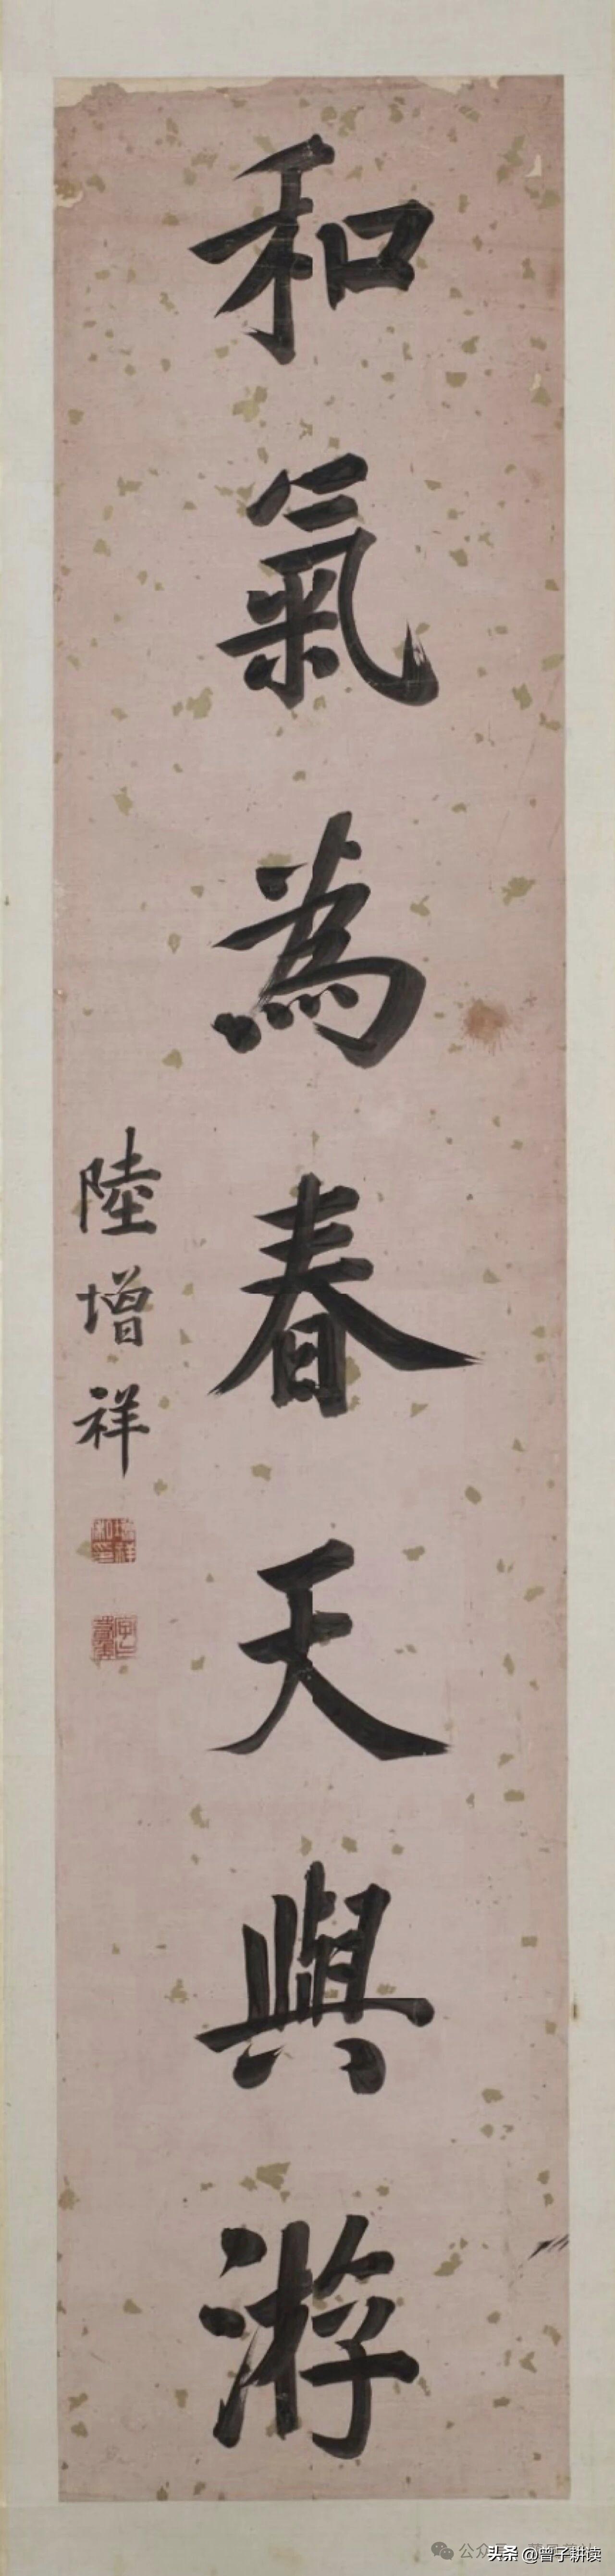 和氣為春天與游
陸增祥
头条 @曾子耕读